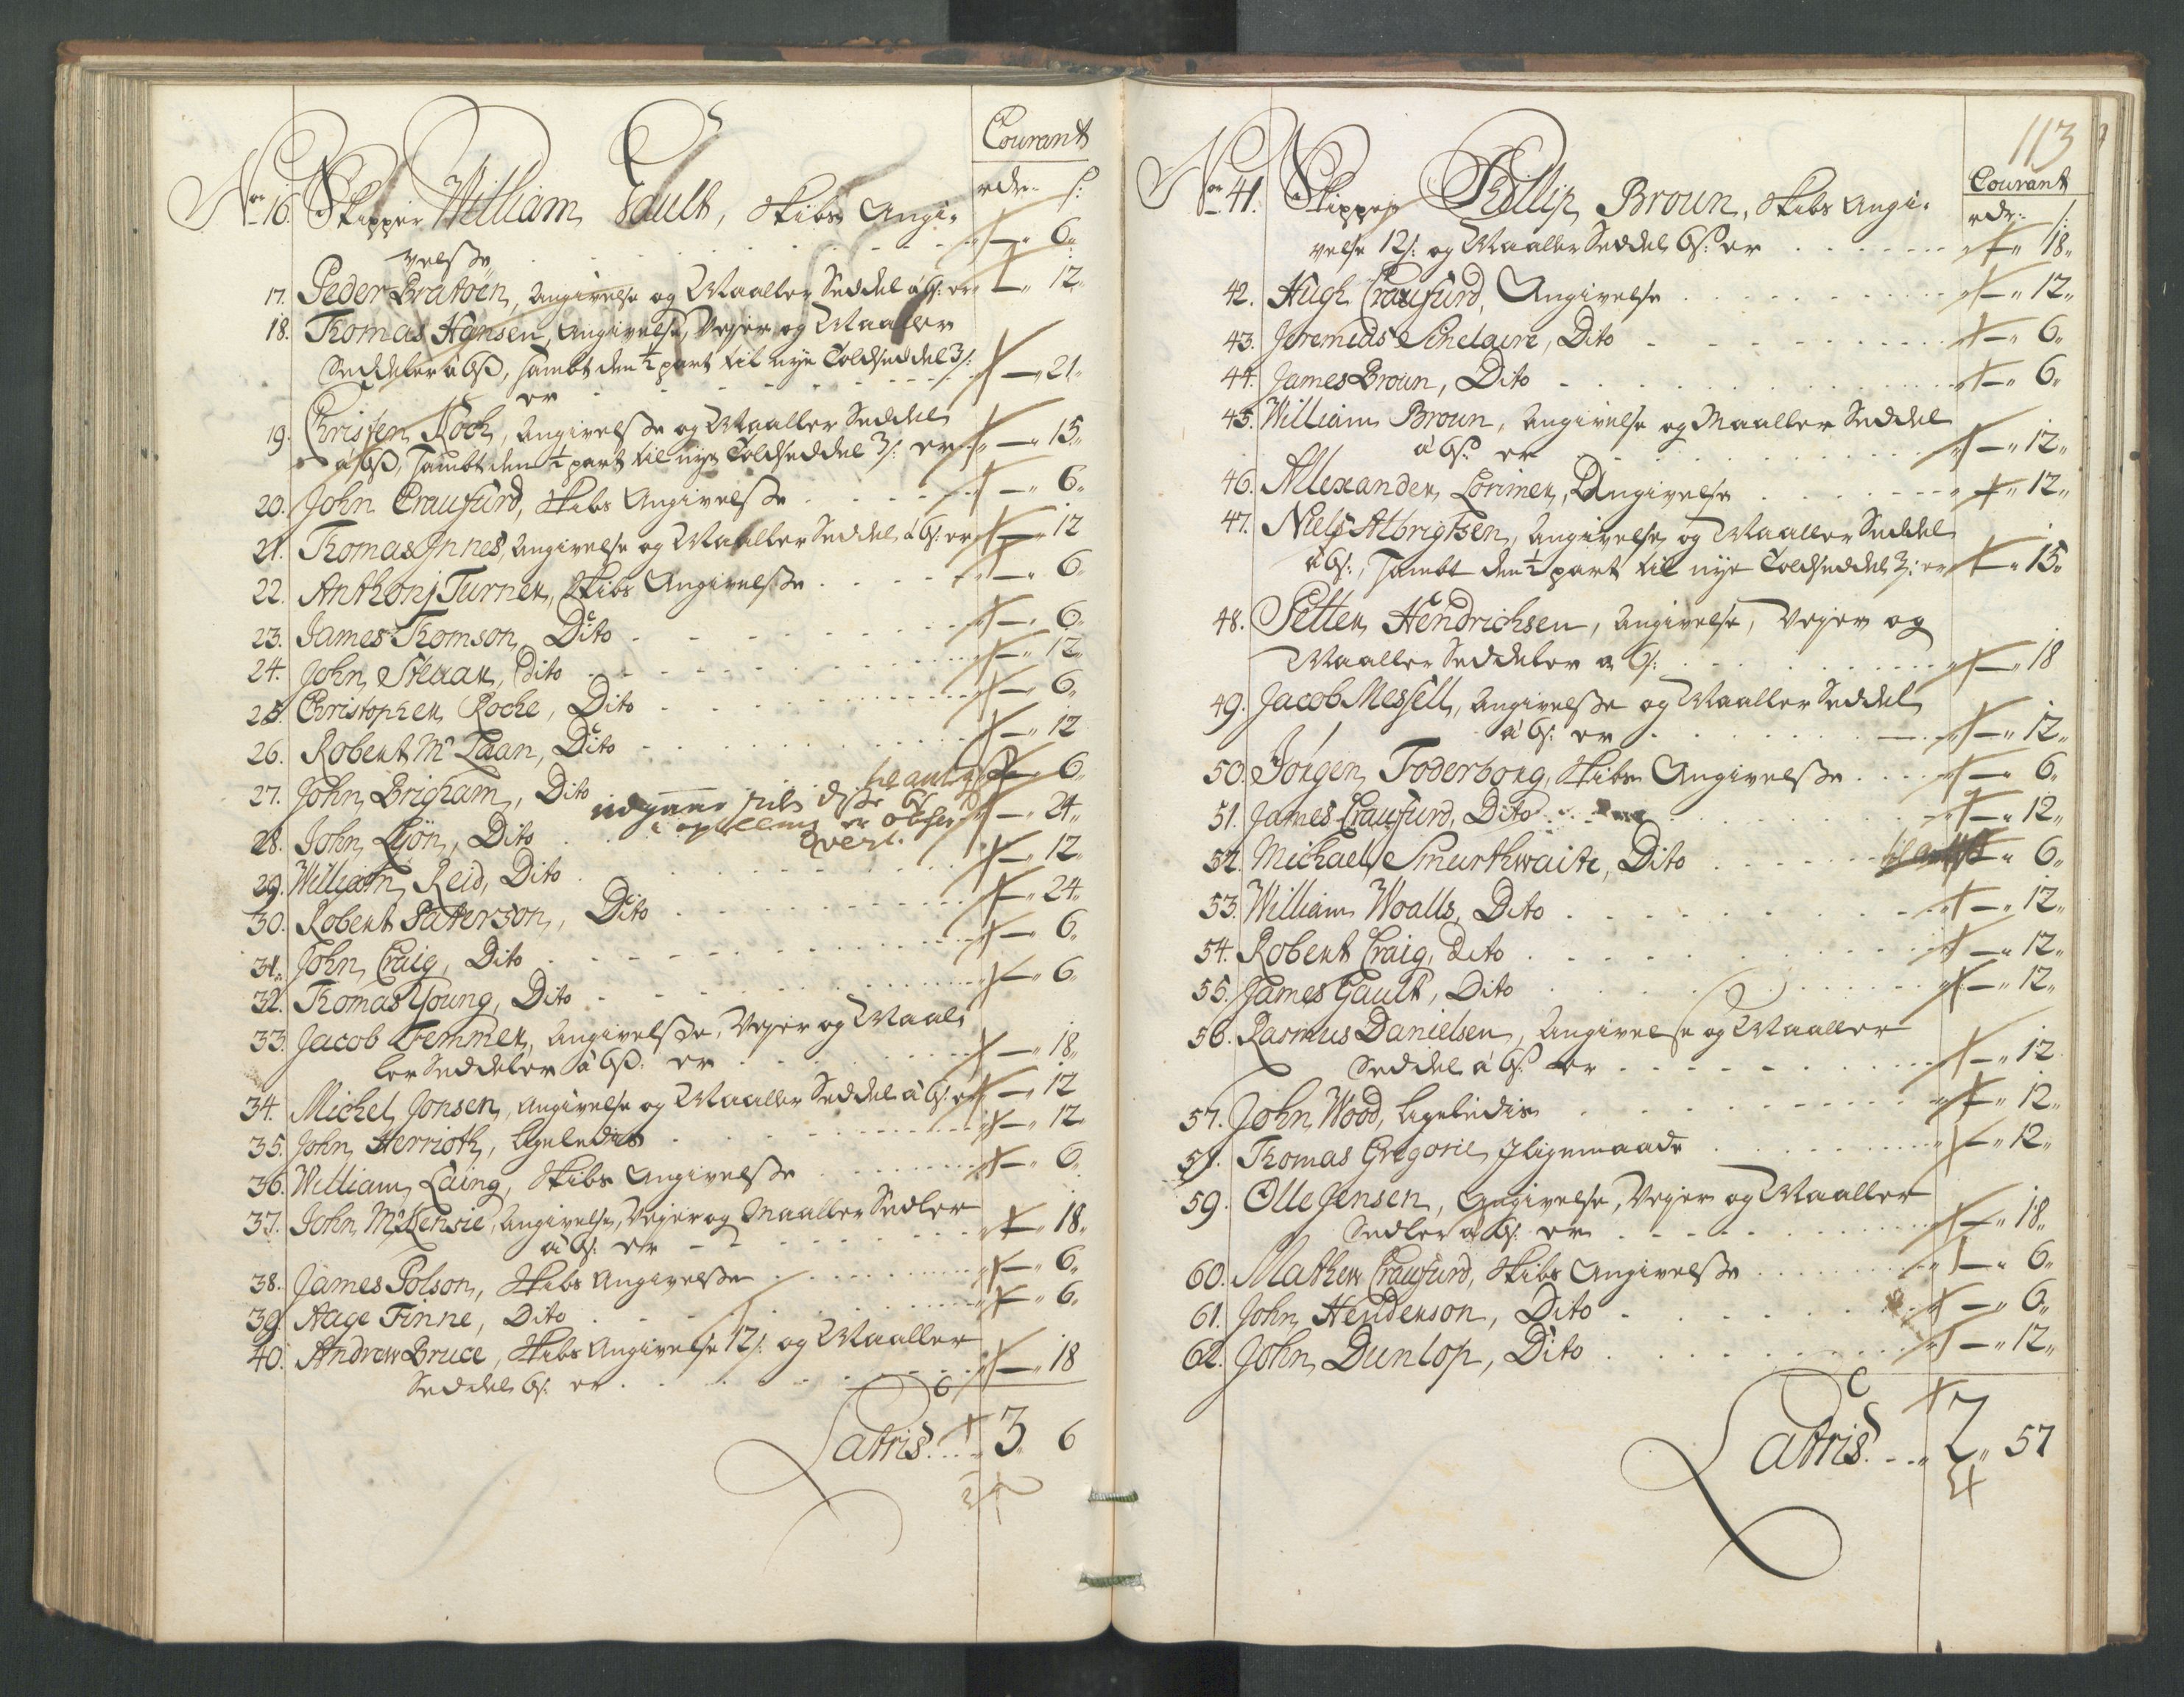 Courant
rdr. s:
No 16. Skipper William Gault, Skibs Angi-
velsse 6.
17. Peder Bratöen, Angivelse og Maaller Seddel à 6s: er 12.
18. Thomas Hansen, Angivelse, Vejer og Maaller
Seddeler à 6s, sambt den ½ part til nye Toldseddel 3s:
er 21.
19. Christen Koch, Angivelsse og Maaller Seddel
à 6s, sambt den ½ part til nye Toldseddel 3s: er 15.
20. John Craufurd, Skibs Angivelsse 6.
21. Thomas Jnnes, Angivelse og Maaller Seddel à 6s: er 12
22. Anthonj Turner, Skibs Angivelsse 6.
23. James Thomson, Dito 6.
24. John Steuar, Dito 12.
25. Christopher Roche, Dito 6.
26. Robert Mc Laan, Dito 12
27. John Brigham, Dito 6.
28. John Lyön, Dito 24.
29. William Reid, Dito 12.
30. Robert Paterson, Dito 24.
31. John Craig, Dito 6.
32. Thomas Young, Dito 6.
33. Jacob Temmer, Angivelsse, Vejer og Maal-
ler Seddeler à 6s. er 18.
34. Michel Jonsen, Angivelse og Maaller Seddel à 6s: er 12
35. John Herrioth, ligeledis 12.
36. William Laing, Skibs Angivelsse 6.
37. John McKensie, Angivelse, Vejer og Maaller Sedler
à 6s: er 18.
38. James Polson, Skibs Angivelsse 6.
39. Aage Finne, Dito 6.
40. Andrew Bruce, Skibs Angivelse 12s: og Maaller
Seddel 6s: er 18
Latris 3. 6
113
Courant
rdr. s:
No 41. Skipper Phillip Broun, Skibs Angi-
velse 12s: og Maaller Seddel 6s: er 18.
42. Hugh Craufurd, Angivelse 12.
43. Jeremias Sinclaire, Dito 6.
44. James Broun, Dito 6.
45. William Broun, Angivelse og Maaller Seddel
à 6s: er 12.
46. Allexander Lorimer, Angivelse 12.
47. Niels Albrigtsen, Angivelse og Maaller Seddel
à 6s:, sambt den ½ part til nye Toldseddel 3s: er 15.
48. Petter Hendrichsen, Angivelse, Vejer og
Maaller Seddeler a 6s: 18
49. Jacob Messell, Angivelsse og Maaller Seddel
à 6s: er 12.
50. Jörgen Foderborg, Skibs Angivelsse 6.
51. James Craufurd, Dito 12.
52. Michael Smurthwaite, Dito 6.
53. William Woalls, Dito 12.
54. Robert Craig, Dito 12.
55. James Gault, Dito 12.
56. Rasmus Danielsen, Angivelse og Maaller
Seddel à 6s: er 12
57. John Wood, ligeledis 12.
58. Thomas Gregorie, Jligemaade 12.
59. Olle Jensen, Angivelse, Vejer og Maaller
Sedler à 6s: er 18.
60. Mathew Craufurd, Skibs Angivelsse 6.
61. John Henderson, Dito 6.
62. John Dunlop, Dito 12.
Latris 2. 57